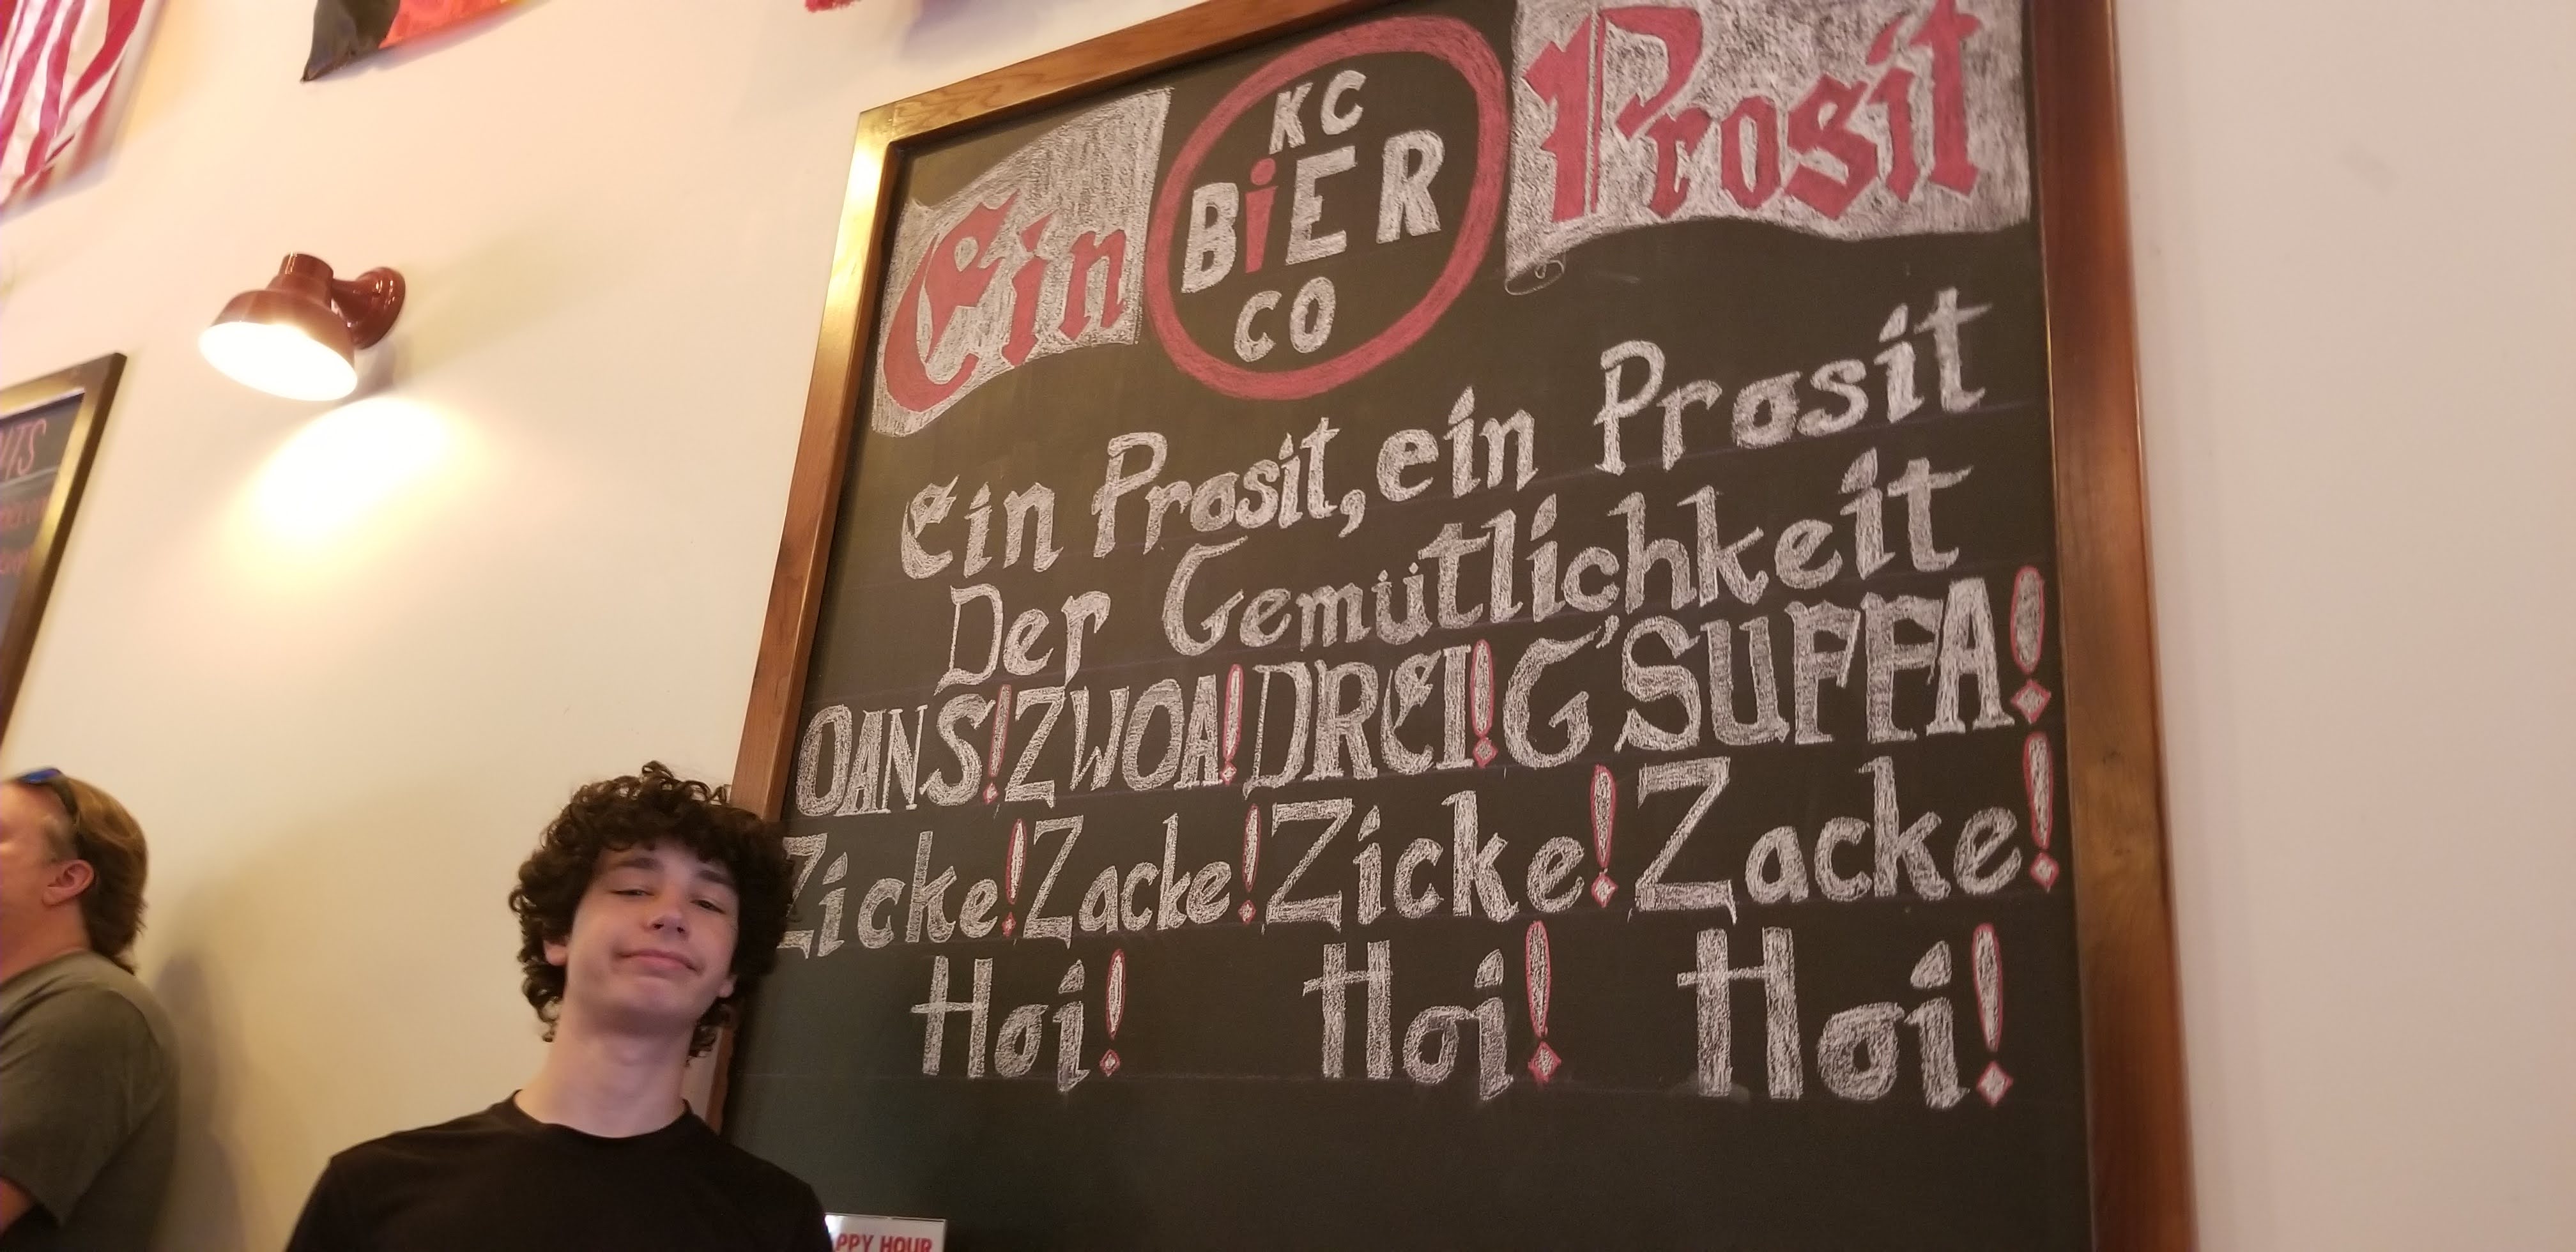 Ein KC BiER CO Prosit
Ein Prosit, ein Prosit
Der Gemütlichkeit
OANS! ZWOA! DREI! G'SUFFA!
Zicke! Zacke! Zicke! Zacke!
Hoi! Hoi! Hoi!
HOUR